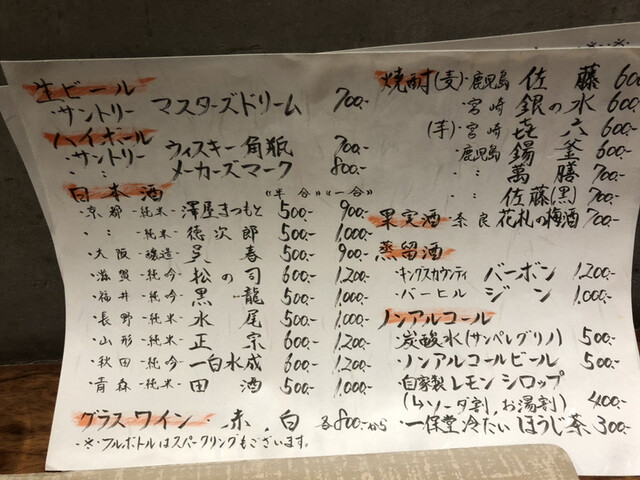 生ビール
・サントリー マスターズドリーム 700.-
ハイボール
・サントリー ウィスキー角瓶 700.-
・ 〃 メーカーズマーク 800.-
日本酒 《半合》《一合》
・京都-純米-澤屋まつもと 500.- 900.-
・ 〃 -純米-徳次郎 500.- 1,000.-
・大阪-醸造-呉春 500.- 900.-
・滋賀-純吟-松の司 600.- 1,200.-
・福井-純吟-黒龍 500.- 1,000.-
・長野-純米-水尾 500.- 1,000.-
・山形-純米-正宗 600.- 1,200.-
・秋田-純吟-一白水成 600.- 1,200.-
・青森-純米-田酒 500.- 1,000.-
グラスワイン ・赤、白 各800.-から
・※・フルボトルはスパークリングもございます。
焼酎(麦)・鹿児島 佐藤 600
・宮崎 銀の水 600.-
(芋)・宮崎 㐂六 600.-
・鹿児島 錫釜 600.-
・ 〃 萬膳 700.-
・ 〃 佐藤(黒) 700.-
果実酒・奈良 花札の梅酒 700.-
蒸留酒
・キングスカウンティ バーボン 1,200.-
・バーヒル ジン 1,000.-
ノンアルコール
・炭酸水(サンペレグリノ) 500.-
・ノンアルコールビール 500.-
・自家製レモンシロップ
(ソーダ割、お湯割) 400.-
・一保堂冷たいほうじ茶 300.-